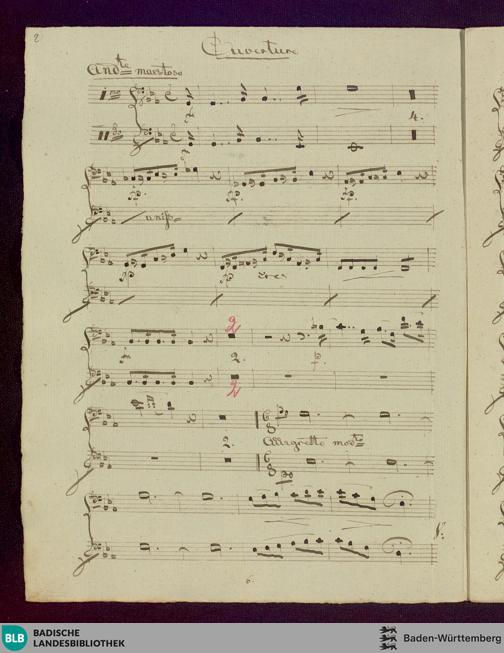 2
Ouverture
Andte maestoso
4.
unis.
cres
2
2.
2
2.
Allegretto modto
6
BLB BADISCHE
LANDESBIBLIOTHEK
Baden-Württemberg